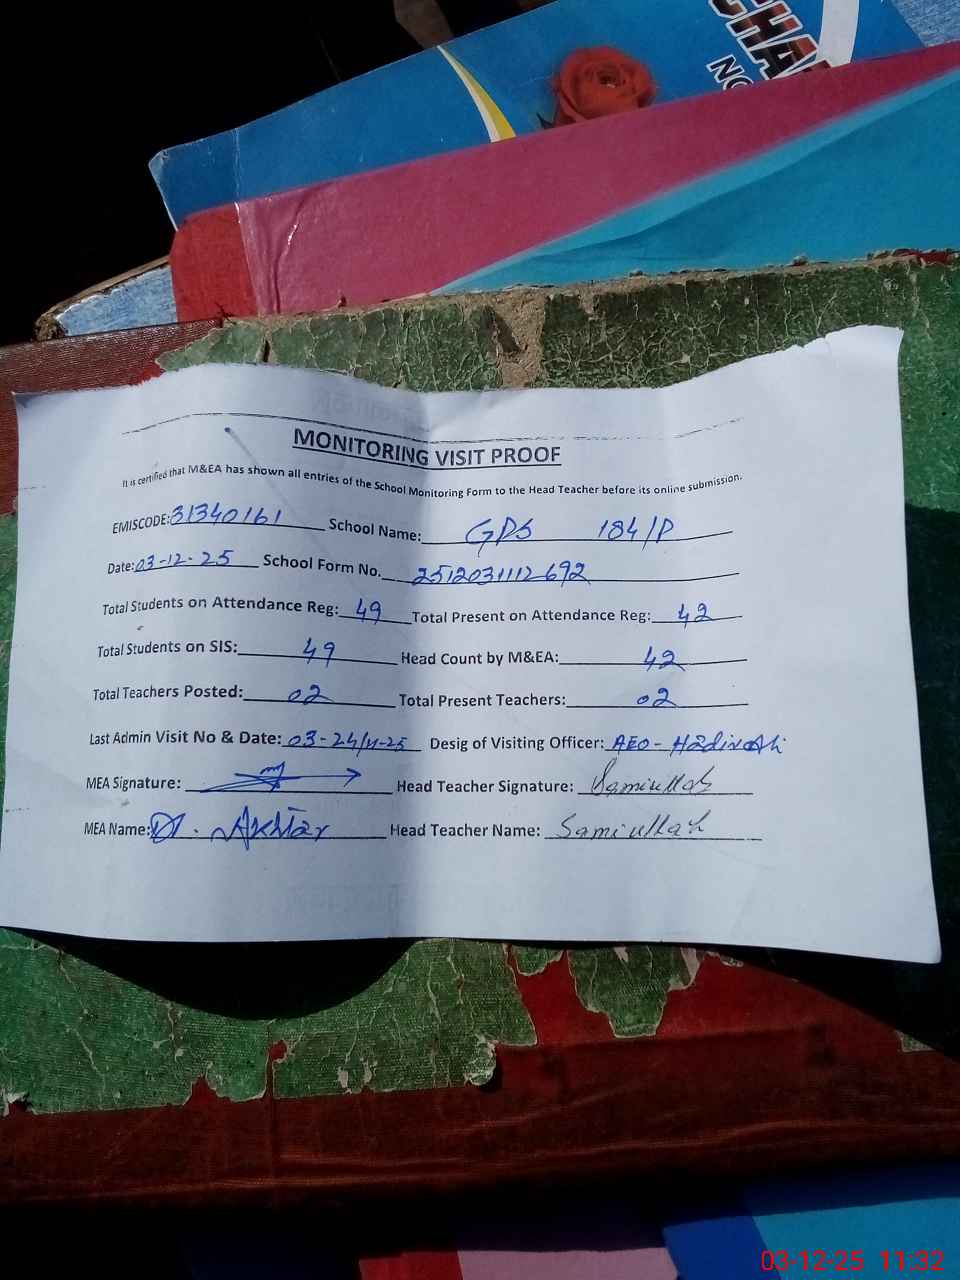 CHA
NO
MONITORING VISIT PROOF
It is certified that M&EA has shown all entries of the School Monitoring Form to the Head Teacher before its online submission.
EMISCODE: 31340161 School Name: GPS 184/P
Date: 03-12-25 School Form No. 2512031112692
Total Students on Attendance Reg: 49 Total Present on Attendance Reg: 42
Total Students on SIS: 49 Head Count by M&EA: 42
Total Teachers Posted: 02 Total Present Teachers: 02
Last Admin Visit No & Date: 03-24/11-25 Desig of Visiting Officer: AEO-
MEA Signature: Head Teacher Signature: Samiullah
MEA Name: Akhtar Head Teacher Name: Samiullah
03-12-25 11:32